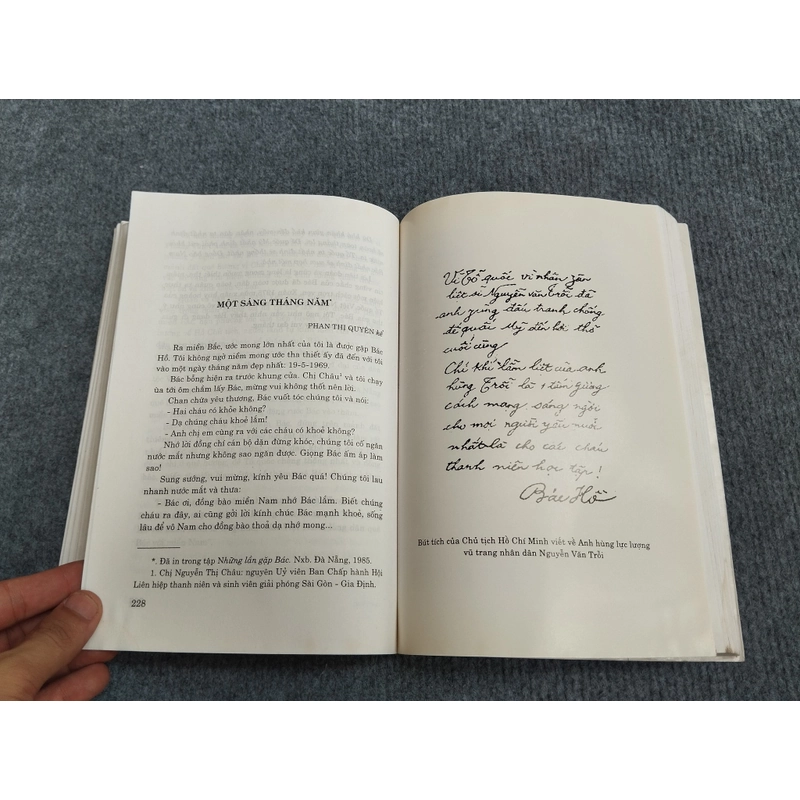 MỘT SÁNG THÁNG NĂM*
PHAN THỊ QUYÊN kể
Ra miền Bắc, ước mong lớn nhất của tôi là được gặp Bác
Hồ. Tôi không ngờ niềm mong ước tha thiết ấy đã đến với tôi
vào một ngày tháng năm đẹp nhất: 19-5-1969.
Bác bỗng hiện ra trước khung cửa. Chị Châu¹ và tôi chạy
ùa tới ôm chầm lấy Bác, mừng vui không thốt nên lời.
Chan chứa yêu thương, Bác vuốt tóc chúng tôi và nói:
- Hai cháu có khỏe không?
- Dạ chúng cháu khoẻ lắm!
- Anh chị em cùng ra với các cháu có khoẻ không?
Nhớ lời đồng chí cán bộ dặn đừng khóc, chúng tôi cố ngăn
nước mắt nhưng không sao ngăn được. Giọng Bác ấm áp làm
sao!
Sung sướng, vui mừng, kính yêu Bác quá! Chúng tôi lau
nhanh nước mắt và thưa:
- Bác ơi, đồng bào miền Nam nhớ Bác lắm. Biết chúng
cháu ra đây, ai cũng gởi lời kính chúc Bác mạnh khoẻ, sống
lâu để vô Nam cho đồng bào thoả dạ nhớ mong...
*. Đã in trong tập Những lần gặp Bác. Nxb. Đà Nẵng, 1985.
1. Chị Nguyễn Thị Châu: nguyên Uỷ viên Ban Chấp hành Hội
Liên hiệp thanh niên và sinh viên giải phóng Sài Gòn - Gia Định.
228
Vì Tổ quốc vì nhân zân
liêt sĩ Nguyễn văn Trỗi đã
anh zũng đấu tranh chống
đế quốc Mỹ đến hơi thở
cuối cùng
Chí khí lẫm liêt của anh
hùng Trỗi là 1 tấm gương
cách mạng sáng ngời
cho mọi người yêu nước
nhất là cho các cháu
thanh niên học tập!
Bác Hồ
Bút tích của Chủ tịch Hồ Chí Minh viết về Anh hùng lực lượng
vũ trang nhân dân Nguyễn Văn Trỗi